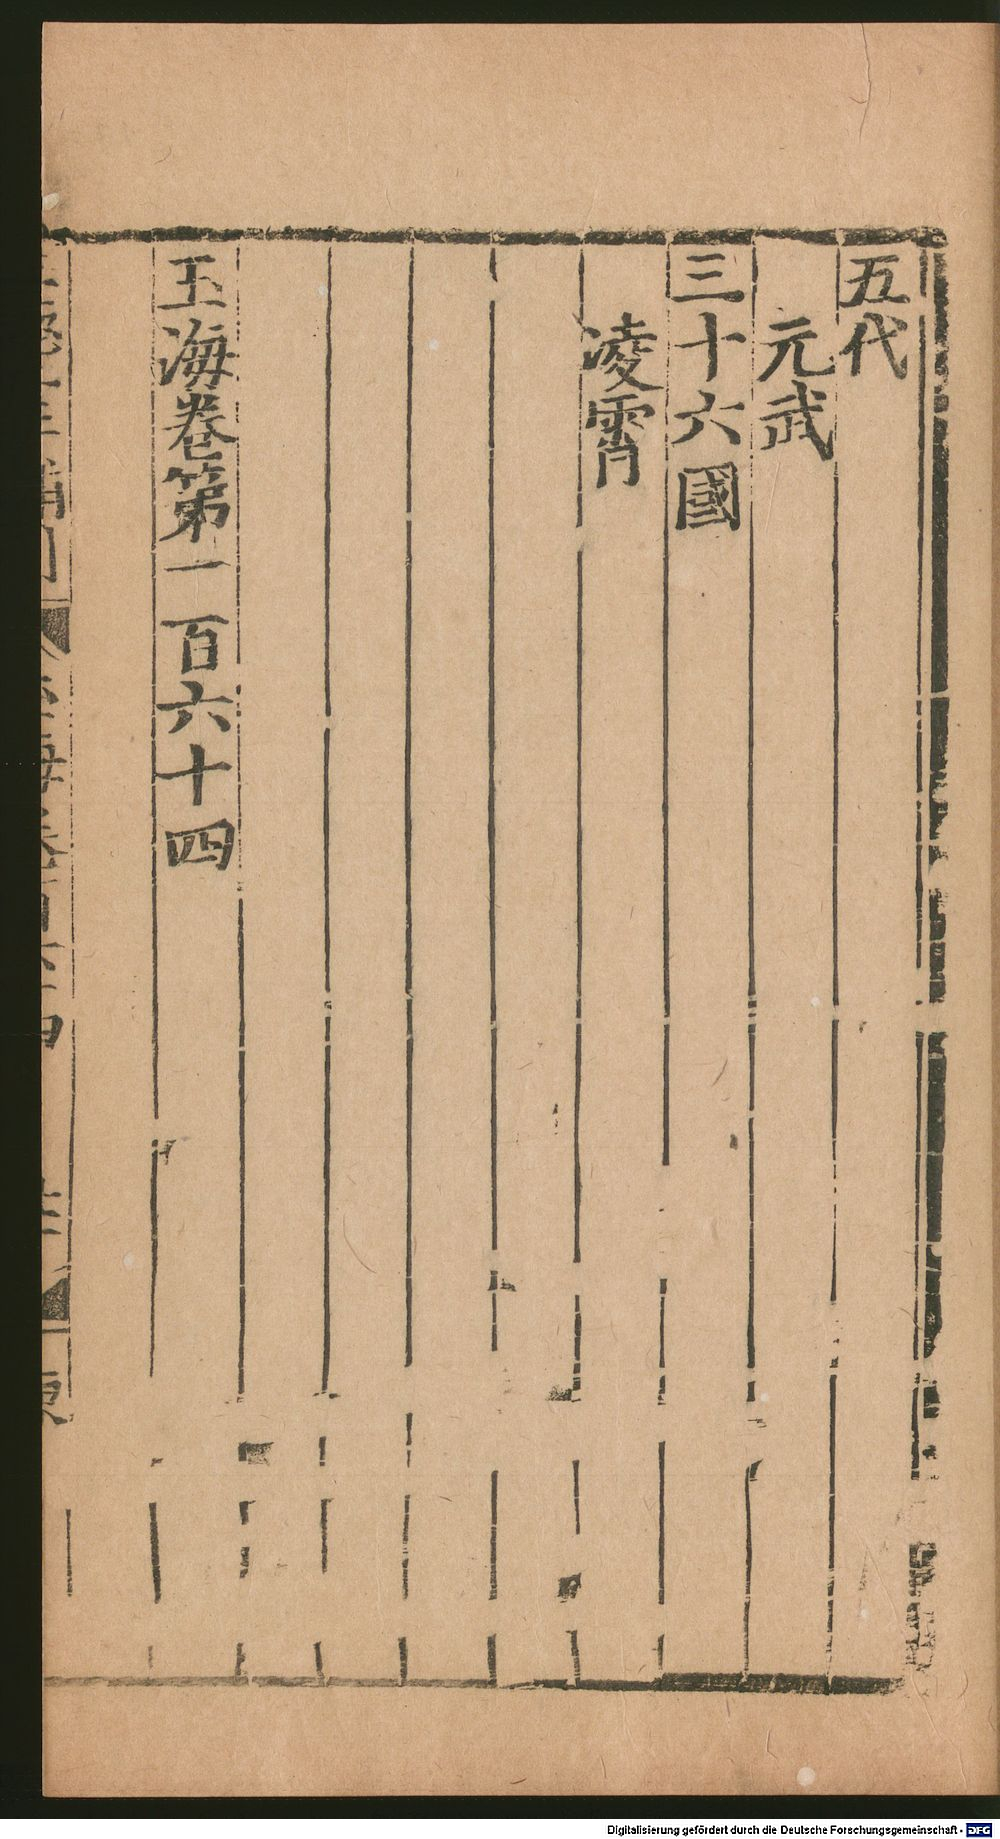 五代
元武
三十六國
凌霄
玉海卷第一百六十四
Digitalisierung gefördert durch die Deutsche Forschungsgemeinschaft - DFG